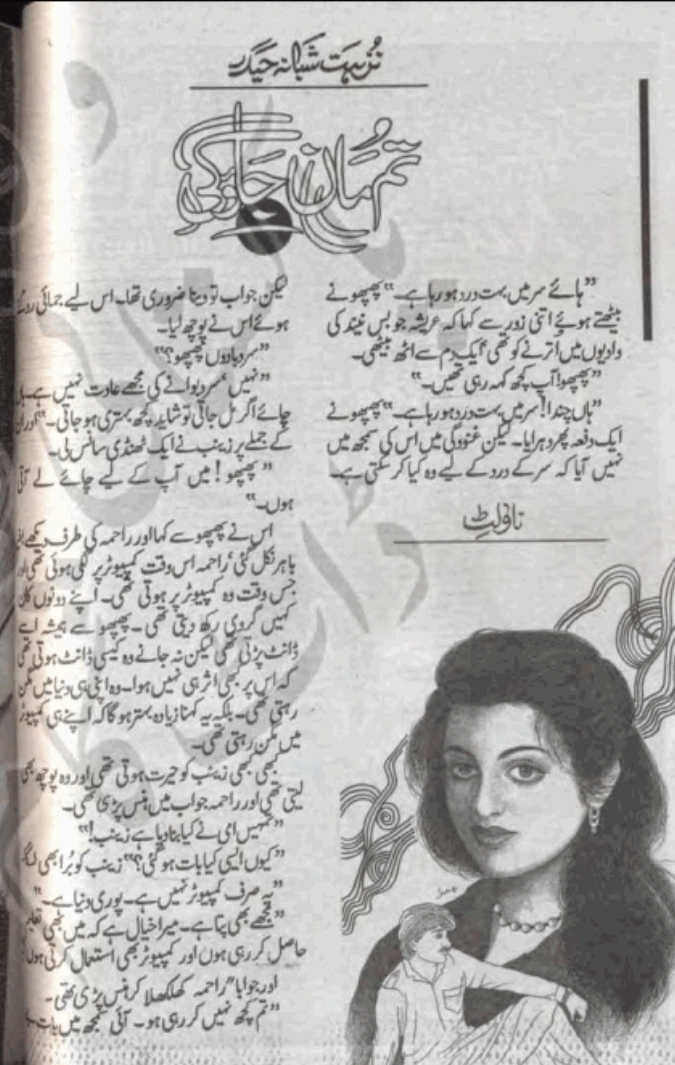 نزہت شبانہ حیدر
تم مان جاؤ گی
"ہائے سر میں بہت درد ہو رہا ہے۔" پھپھو نے
بیٹھتے ہوئے اتنی زور سے کہا کہ عریشہ جو بس نیند کی
وادیوں میں اترنے کو تھی ایک دم سے اٹھ بیٹھی۔
"پھپھو! آپ کچھ کہہ رہی تھیں۔"
"ہاں چندا! سر میں بہت درد ہو رہا ہے۔" پھپھو نے
ایک دفعہ پھر دہرایا۔ لیکن غنودگی میں اس کی سمجھ میں
نہیں آیا کہ سر کے درد کے لیے وہ کیا کر سکتی ہے۔
ناولٹ
لیکن جواب تو دینا ضروری تھا۔ اس لیے جمائی روکتے
ہوئے اس نے پوچھ لیا۔
"سر دبا دوں پھپھو؟"
"نہیں، سر دبوانے کی مجھے عادت نہیں ہے۔ ہاں
چائے اگر مل جاتی تو شاید کچھ بہتری ہو جاتی۔" اور ان
کے جملے پر زینب نے ایک ٹھنڈی سانس لی۔
"پھپھو! میں آپ کے لیے چائے لے آتی
ہوں۔"
اس نے پھپھو سے کہا اور راحمہ کی طرف دیکھے
باہر نکل گئی، راحمہ اس وقت کمپیوٹر پر لگی ہوئی تھی اور
جس وقت وہ کمپیوٹر پر ہوتی تھی۔ اپنے دونوں کان
کہیں گروی رکھ دیتی تھی۔ پھپھو سے ہمیشہ اسے
ڈانٹ پڑتی تھی لیکن نہ جانے وہ کیسی ڈانٹ ہوتی تھی
کہ اس پر کبھی اثر ہی نہیں ہوا۔ وہ اپنی ہی دنیا میں مگن
رہتی تھی۔ بلکہ یہ کہنا زیادہ بہتر ہو گا کہ اپنے ہی کمپیوٹر
میں مگن رہتی تھی۔
کبھی کبھی زینب کو حیرت ہوتی تھی اور وہ پوچھ بھی
لیتی تھی اور راحمہ جواب میں ہنس پڑی تھی۔
"تمہیں امی نے کیا بنا دیا ہے زینب!"
"کیوں ایسی کیا بات ہو گئی؟" زینب کو برا بھی لگا
"یہ صرف کمپیوٹر نہیں ہے۔ پوری دنیا ہے۔"
"مجھے بھی پتا ہے۔ میرا خیال ہے کہ میں بھی تعلیم
حاصل کر رہی ہوں اور کمپیوٹر بھی استعمال کرتی ہوں
اور جوابا" راحمہ کھلکھلا کر ہنس پڑی تھی۔
"تم کچھ نہیں کر رہی ہو۔ آئی سمجھ میں بات